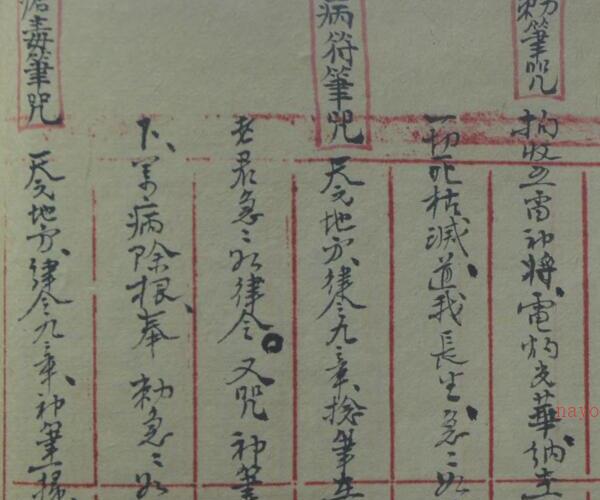 勅筆咒
拘收五雷神將、電灼光華納
一切死枯滅道我長生、急〻如
病符筆咒
天圓地方、律令九章、捻筆在
老君急〻如律令。又咒 神筆
下、萬病除根、奉 勅急〻如
瘡毒筆咒
天圓地方、律令九章、神筆一揮
nayo